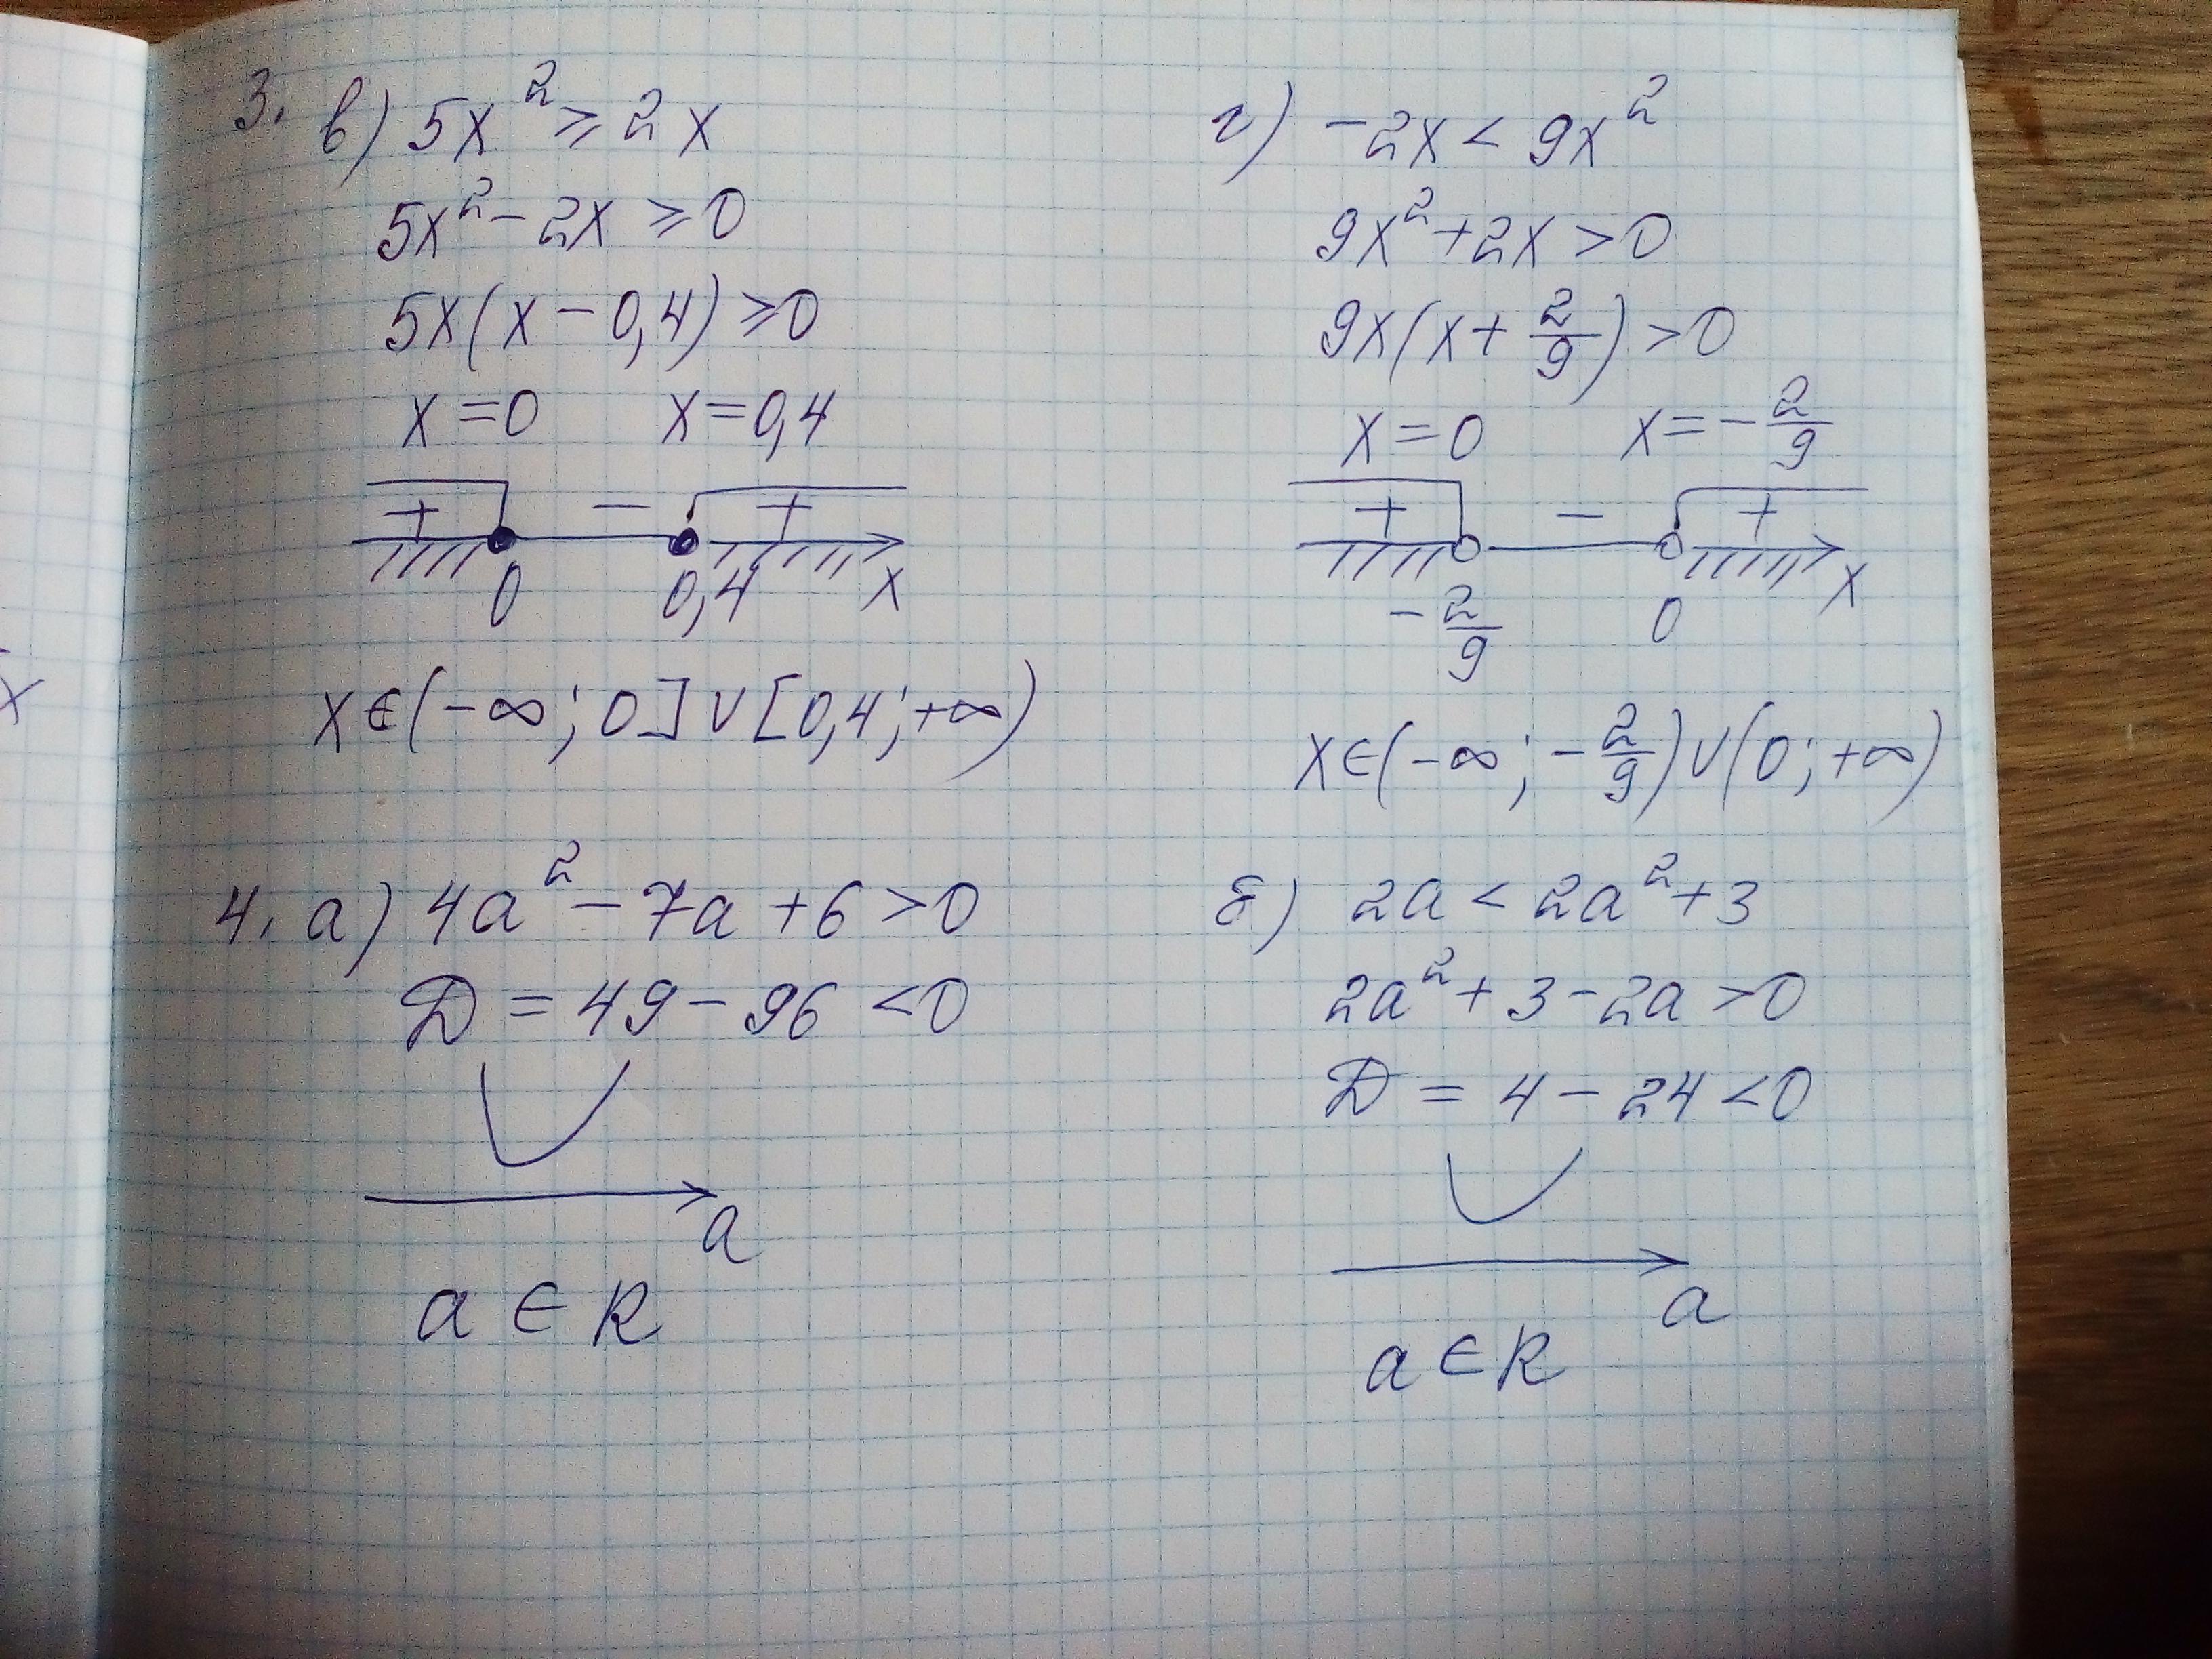 3. в) 5x² ⩾ 2x
5x² - 2x ⩾ 0
5x(x - 0,4) ⩾ 0
x = 0 x = 0,4
+ - +
0 0,4 x
x ∈ (-∞; 0] ∪ [0,4; +∞)
г) -2x < 9x²
9x² + 2x > 0
9x(x + 2/9) > 0
x = 0 x = -2/9
+ - +
-2/9 0 x
x ∈ (-∞; -2/9) ∪ (0; +∞)
4. а) 4a² - 7a + 6 > 0
D = 49 - 96 < 0
a
a ∈ R
б) 2a < 2a² + 3
2a² + 3 - 2a > 0
D = 4 - 24 < 0
a
a ∈ R
x